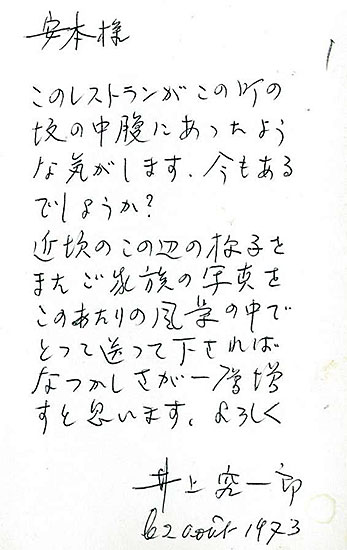 安本様
このレストランがこの町の
坂の中腹にあったよう
な気がします、今もある
でしょうか?
近坎のこの辺の様子を
またご家族の写真を
このあたりの風景の中で
とって送って下されば
なつかしさが一層増
すと思います。よろしく
井上究一郎
le 2 août 1973